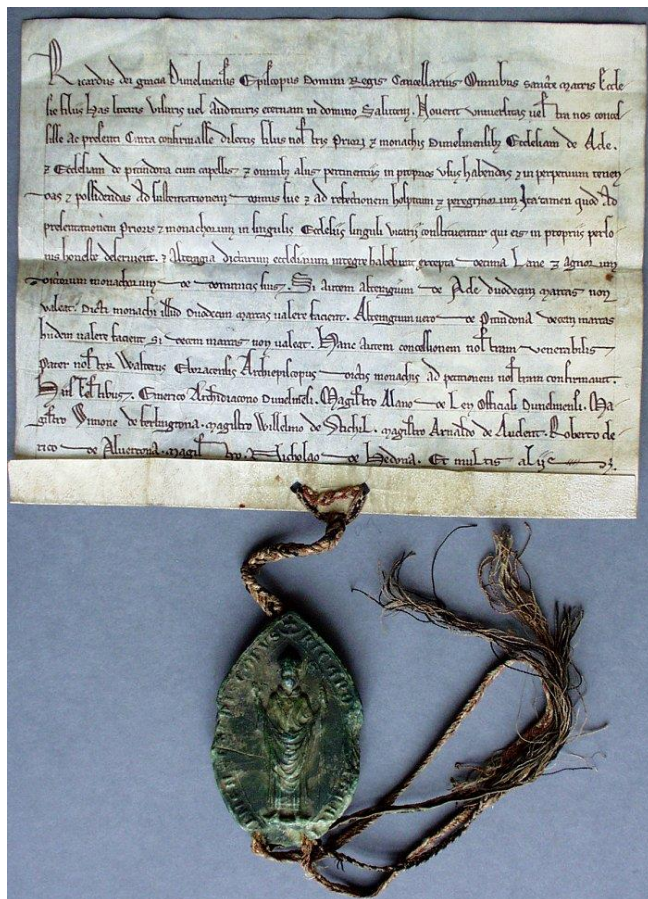 Ricardus dei gracia Dunelmensis Episcopus Domini Regis Cancellarius Omnibus sancte matris Eccle
sie filiis has literas visuris vel audituris eternam in domino Salutem. Noverit universitas nos conces
sisse ac presenti Carta confirmasse dilectis filiis Priori ⁊ monachis Dunelmensibus Ecclesiam de Ade.
⁊ Ecclesiam de prudona cum capellis ⁊ omnibus aliis pertinentiis in proprios usus habendas ⁊ in perpetuum tenen
das ⁊ possidendas Ad sustentationem domus sue ⁊ ad refectionem hospitum ⁊ peregrinorum Ita tamen quod Ad
presentationem Prioris ⁊ monachorum in singulis Ecclesiis singuli vicarii constituentur qui eis in propriis perso
nis honeste deservient. ⁊ Alteragia dictarum ecclesiarum integre habebunt excepta decima Lane ⁊ agnorum
dictorum monachorum de dominicis suis. Si autem alteragium de Ade duodecim marcas non
valeat. Dicti monachi illud duodecim marcas valere facient. Alteragium vero de Prudona decem marcas
valere facient si decem marcas non valeat. Hanc autem concessionem nostram venerabilis
Pater noster Walterus Eboracensis Archiepiscopus dictis monachis ad peticionem nostram confirmavit.
Hiis Testibus. Archidiacono Dunelmensi. Magistro Alano de Officiali Dunelmensi. Ma
gistro Simone de ferlingtona. magistro Willelmo de Stichil. magistro Arnaldo de Audent. Roberto cle
rico de Alvertona. magistro Nicholao de Hedona. Et multis aliis